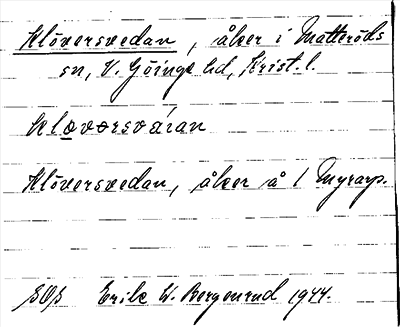 Klöversvedan, åker i Matteröds
sn, V. Göinge hd, Krist. l.
kløvərsvǽran
Klöversvedan, åker å 1 Myrarp.
SOS Erik W. Bergenrud 1944.